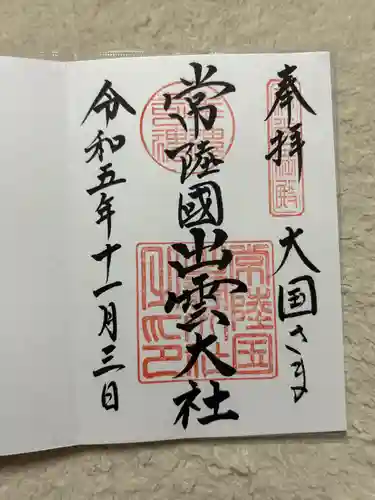 奉拝
大国さま
常陸國出雲大社
令和五年十一月三日
常陸国